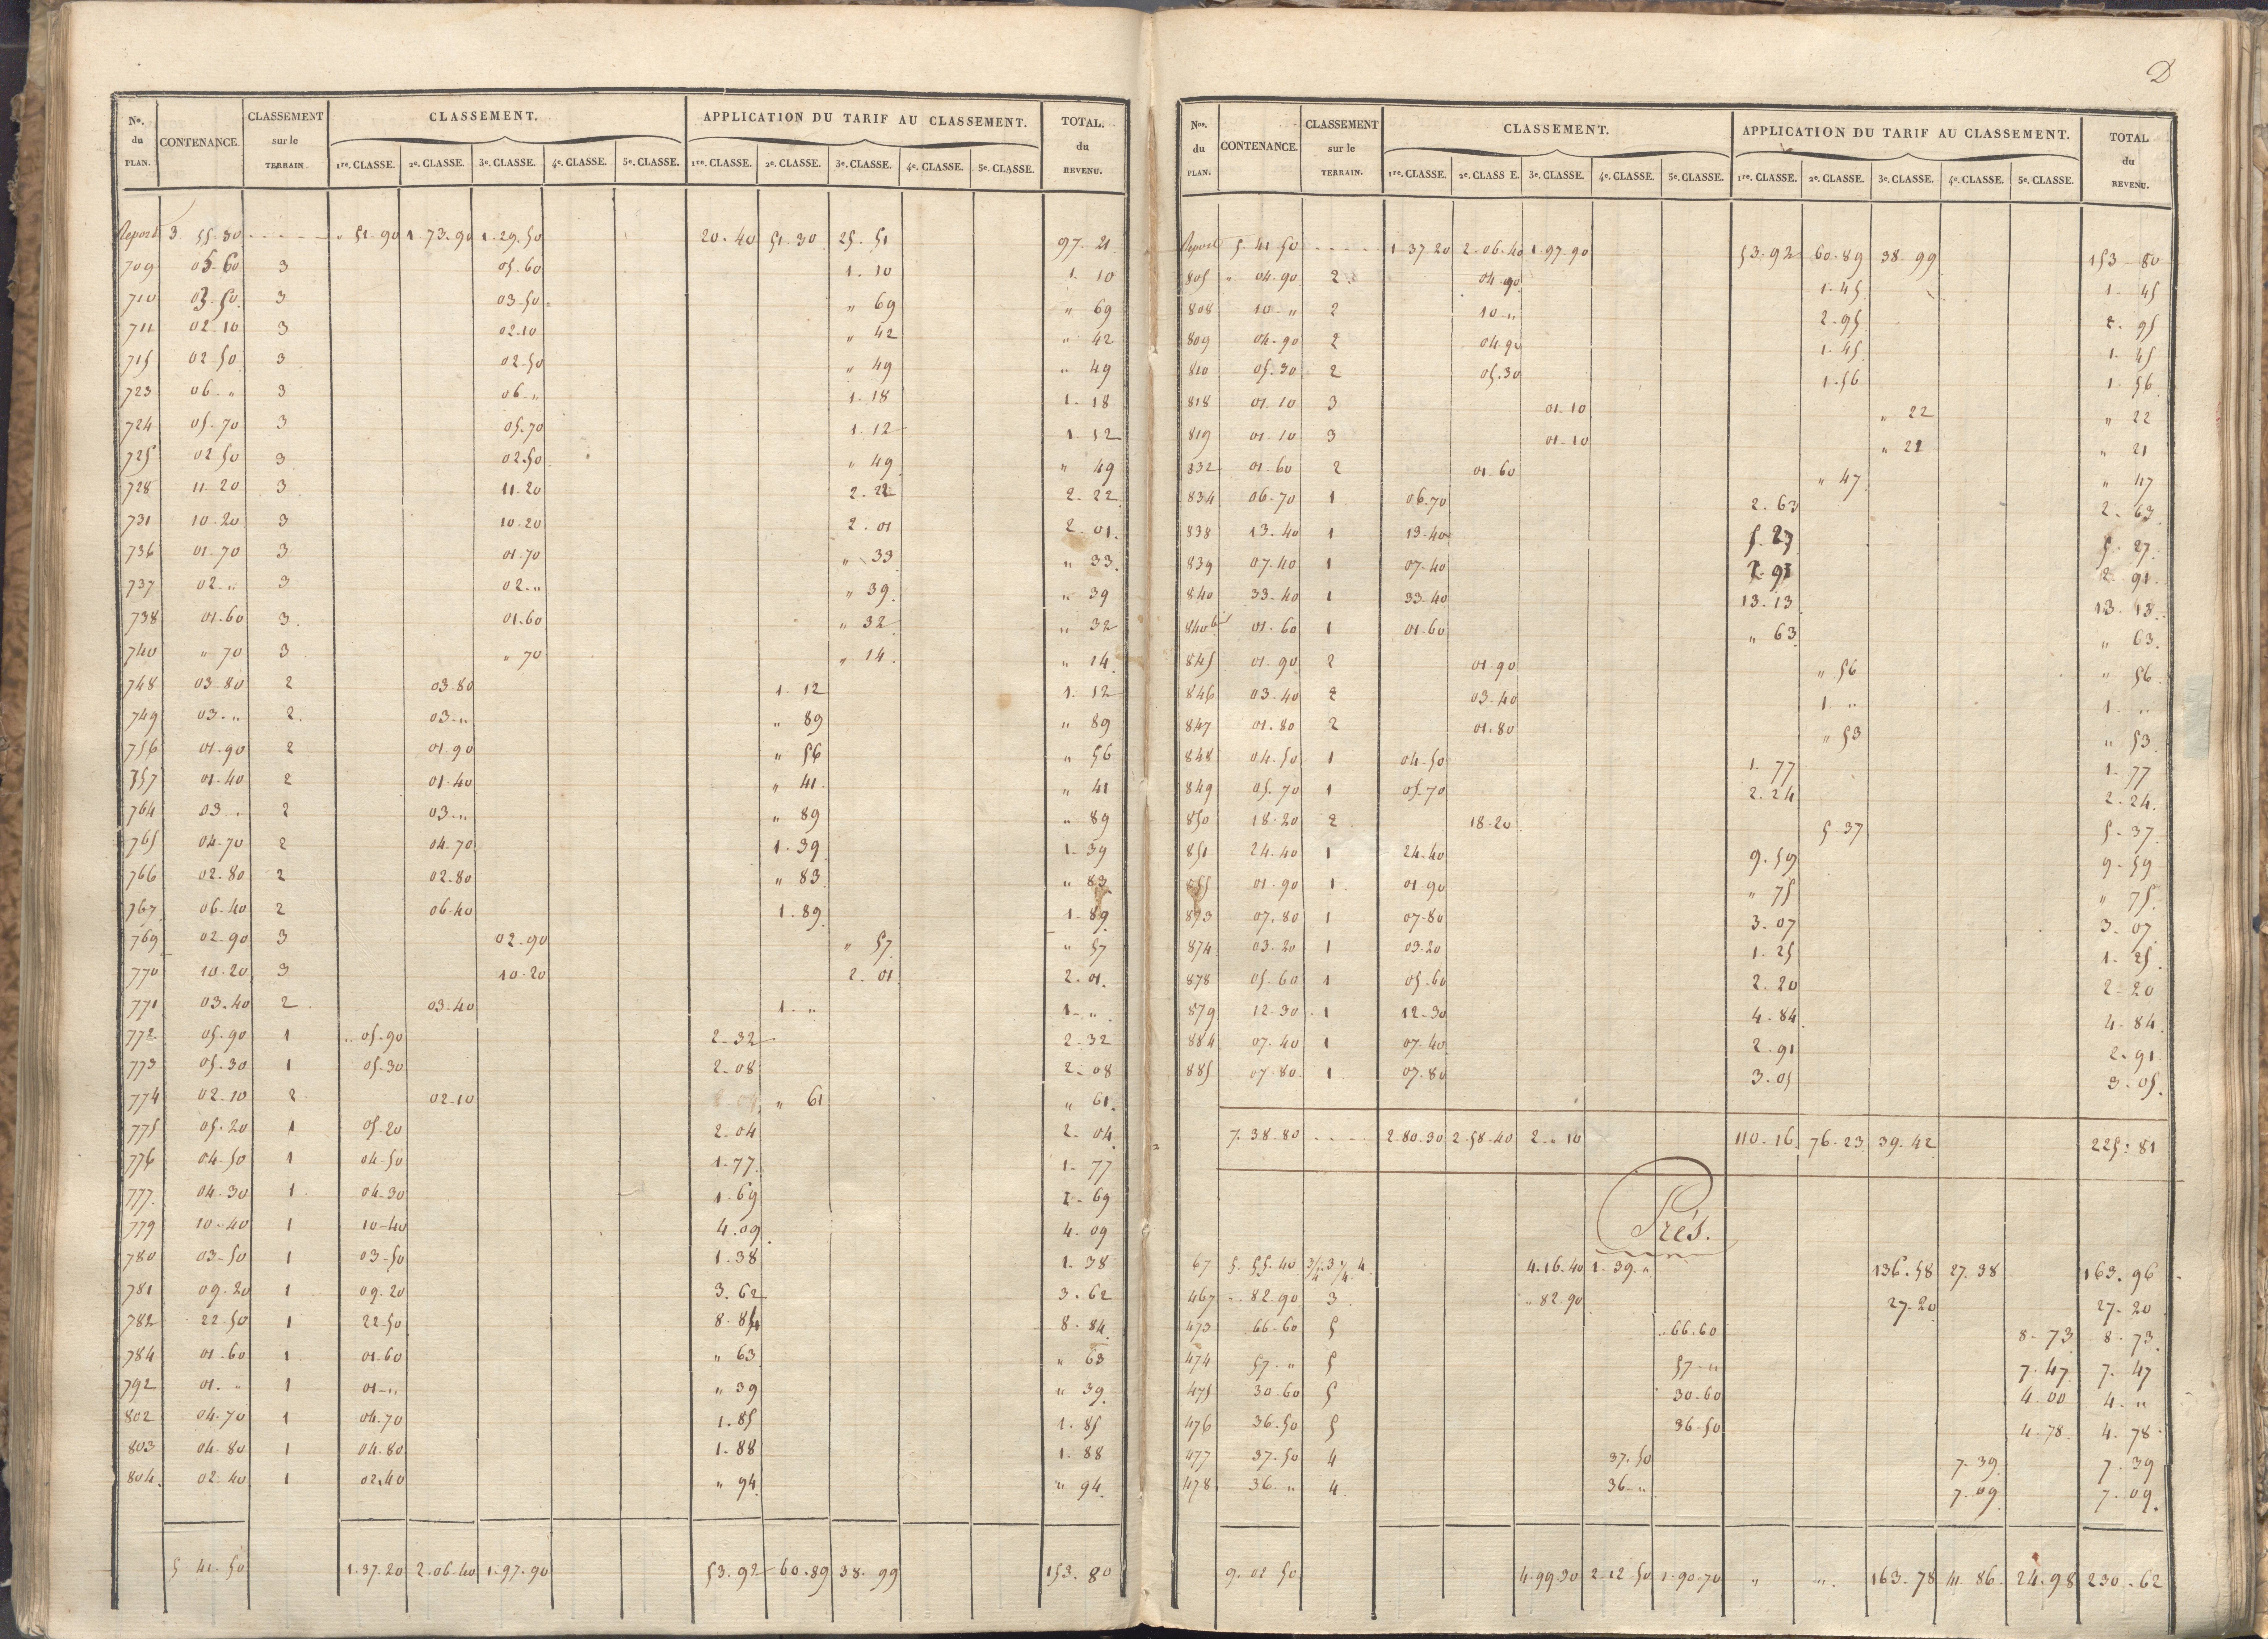 Nos. du PLAN. CONTENANCE. CLASSEMENT sur le TERRAIN. CLASSEMENT. APPLICATION DU TARIF AU CLASSEMENT. TOTAL. du REVENU.
1re. CLASSE. 2e. CLASSE. 3e. CLASSE. 4e. CLASSE. 5e. CLASSE. 1re. CLASSE. 2e. CLASSE. 3e. CLASSE. 4e. CLASSE. 5e. CLASSE.
Report 3 55-30 „ 51-90 1-73-90 1-29-50 20-40 51-30 25-51 97-21
709 05-60 3 05-60 1-10 1-10
710 03-50 3 03-50 „ 69 „ 69
711 02-10 3 02-10 „ 42 „ 42
715 02-50 3 02-50 „ 49 „ 49
723 06-„ 3 06-„ 1-18 1-18
724 05-70 3 05-70 1-12 1-12
725 02-50 3 02-50 „ 49 „ 49
728 11-20 3 11-20 2-22 2-22
731 10-20 3 10-20 2-01 2-01
736 01-70 3 01-70 „ 33 „ 33
737 02-„ 3 02-„ „ 39 „ 39
738 01-60 3 01-60 „ 32 „ 32
740 „ 70 3 „ 70 „ 14 „ 14
748 03-80 2 03-80 1-12 1-12
749 03-„ 2 03-„ „ 89 „ 89
756 01-90 2 01-90 „ 56 „ 56
757 01-40 2 01-40 „ 41 „ 41
764 03-„ 2 03-„ „ 89 „ 89
765 04-70 2 04-70 1-39 1-39
766 02-80 2 02-80 „ 83 „ 83
767 06-40 2 06-40 1-89 1-89
769 02-90 3 02-90 „ 57 „ 57
770 10-20 3 10-20 2-01 2-01
771 03-40 2 03-40 1-„ 1-„
772 05-90 1 05-90 2-32 2-32
773 05-30 1 05-30 2-08 2-08
774 02-10 2 02-10 „ 61 „ 61
775 05-20 1 05-20 2-04 2-04
776 04-50 1 04-50 1-77 1-77
777 04-30 1 04-30 1-69 1-69
779 10-40 1 10-40 4-09 4-09
780 03-50 1 03-50 1-38 1-38
781 09-20 1 09-20 3-62 3-62
782 22-50 1 22-50 8-84 8-84
784 01-60 1 01-60 „ 63 „ 63
792 01-„ 1 01-„ „ 39 „ 39
802 04-70 1 04-70 1-85 1-85
803 04-80 1 04-80 1-88 1-88
804 02-40 1 02-40 „ 94 „ 94
5 41-50 1-37-20 2-06-40 1-97-90 53-92 60-89 38-99 153-80
D
Nos. du PLAN. CONTENANCE. CLASSEMENT sur le TERRAIN. CLASSEMENT. APPLICATION DU TARIF AU CLASSEMENT. TOTAL du REVENU.
1re. CLASSE. 2e. CLASS E. 3e. CLASSE. 4e. CLASSE. 5e. CLASSE. 1re. CLASSE. 2e. CLASSE. 3e. CLASSE. 4e. CLASSE. 5e. CLASSE.
Report 5-41-50 1-37-20 2-06-40 1-97-90 53-92 60-89 38-99 153-80
805 „ 04-90 2 04-90 1-45 1-45
808 10-„ 2 10-„ 2-95 2-95
809 04-90 2 04-90 1-45 1-45
810 05-30 2 05-30 1-56 1-56
818 01-10 3 01-10 „ 22 „ 22
819 01-10 3 01-10 „ 21 „ 21
832 01-60 2 01-60 „ 47 „ 47
834 06-70 1 06-70 2-63 2-63
838 13-40 1 13-40 5-27 5-27
839 07-40 1 07-40 2-91 2-91
840 33-40 1 33-40 13-13 13-13
840b 01-60 1 01-60 „ 63 „ 63
845 01-90 2 01-90 „ 56 „ 56
846 03-40 2 03-40 1-„ 1-„
847 01-80 2 01-80 „ 53 „ 53
848 04-50 1 04-50 1-77 1-77
849 05-70 1 05-70 2-24 2-24
850 18-20 2 18-20 5-37 5-37
851 24-40 1 24-40 9-59 9-59
855 01-90 1 01-90 „ 75 „ 75
873 07-80 1 07-80 3-07 3-07
874 03-20 1 03-20 1-25 1-25
878 05-60 1 05-60 2-20 2-20
879 12-30 1 12-30 4-84 4-84
884 07-40 1 07-40 2-91 2-91
885 07-80 1 07-80 3-05 3-05
7-38-80 2-80-30 2-58-40 2-„ 10 110-16 76-23 39-42 225-81
Prés.
67 5-55-40 3/4 3 1/4 4 4-16-40 1-39-„ 136-58 27-38 163-96
467 „ 82-90 3 „ 82-90 27-20 27-20
473 66-60 5 66-60 8-73 8-73
474 57-„ 5 57-„ 7-47 7-47
475 30-60 5 30-60 4-00 4-„
476 36-50 5 36-50 4-78 4-78
477 37-50 4 37-50 7-39 7-39
478 36-„ 4 36-„ 7-09 7-09
9-02-50 4-99-30 2-12-50 1-90-70 „ „ 163-78 41-86 24-98 230-62